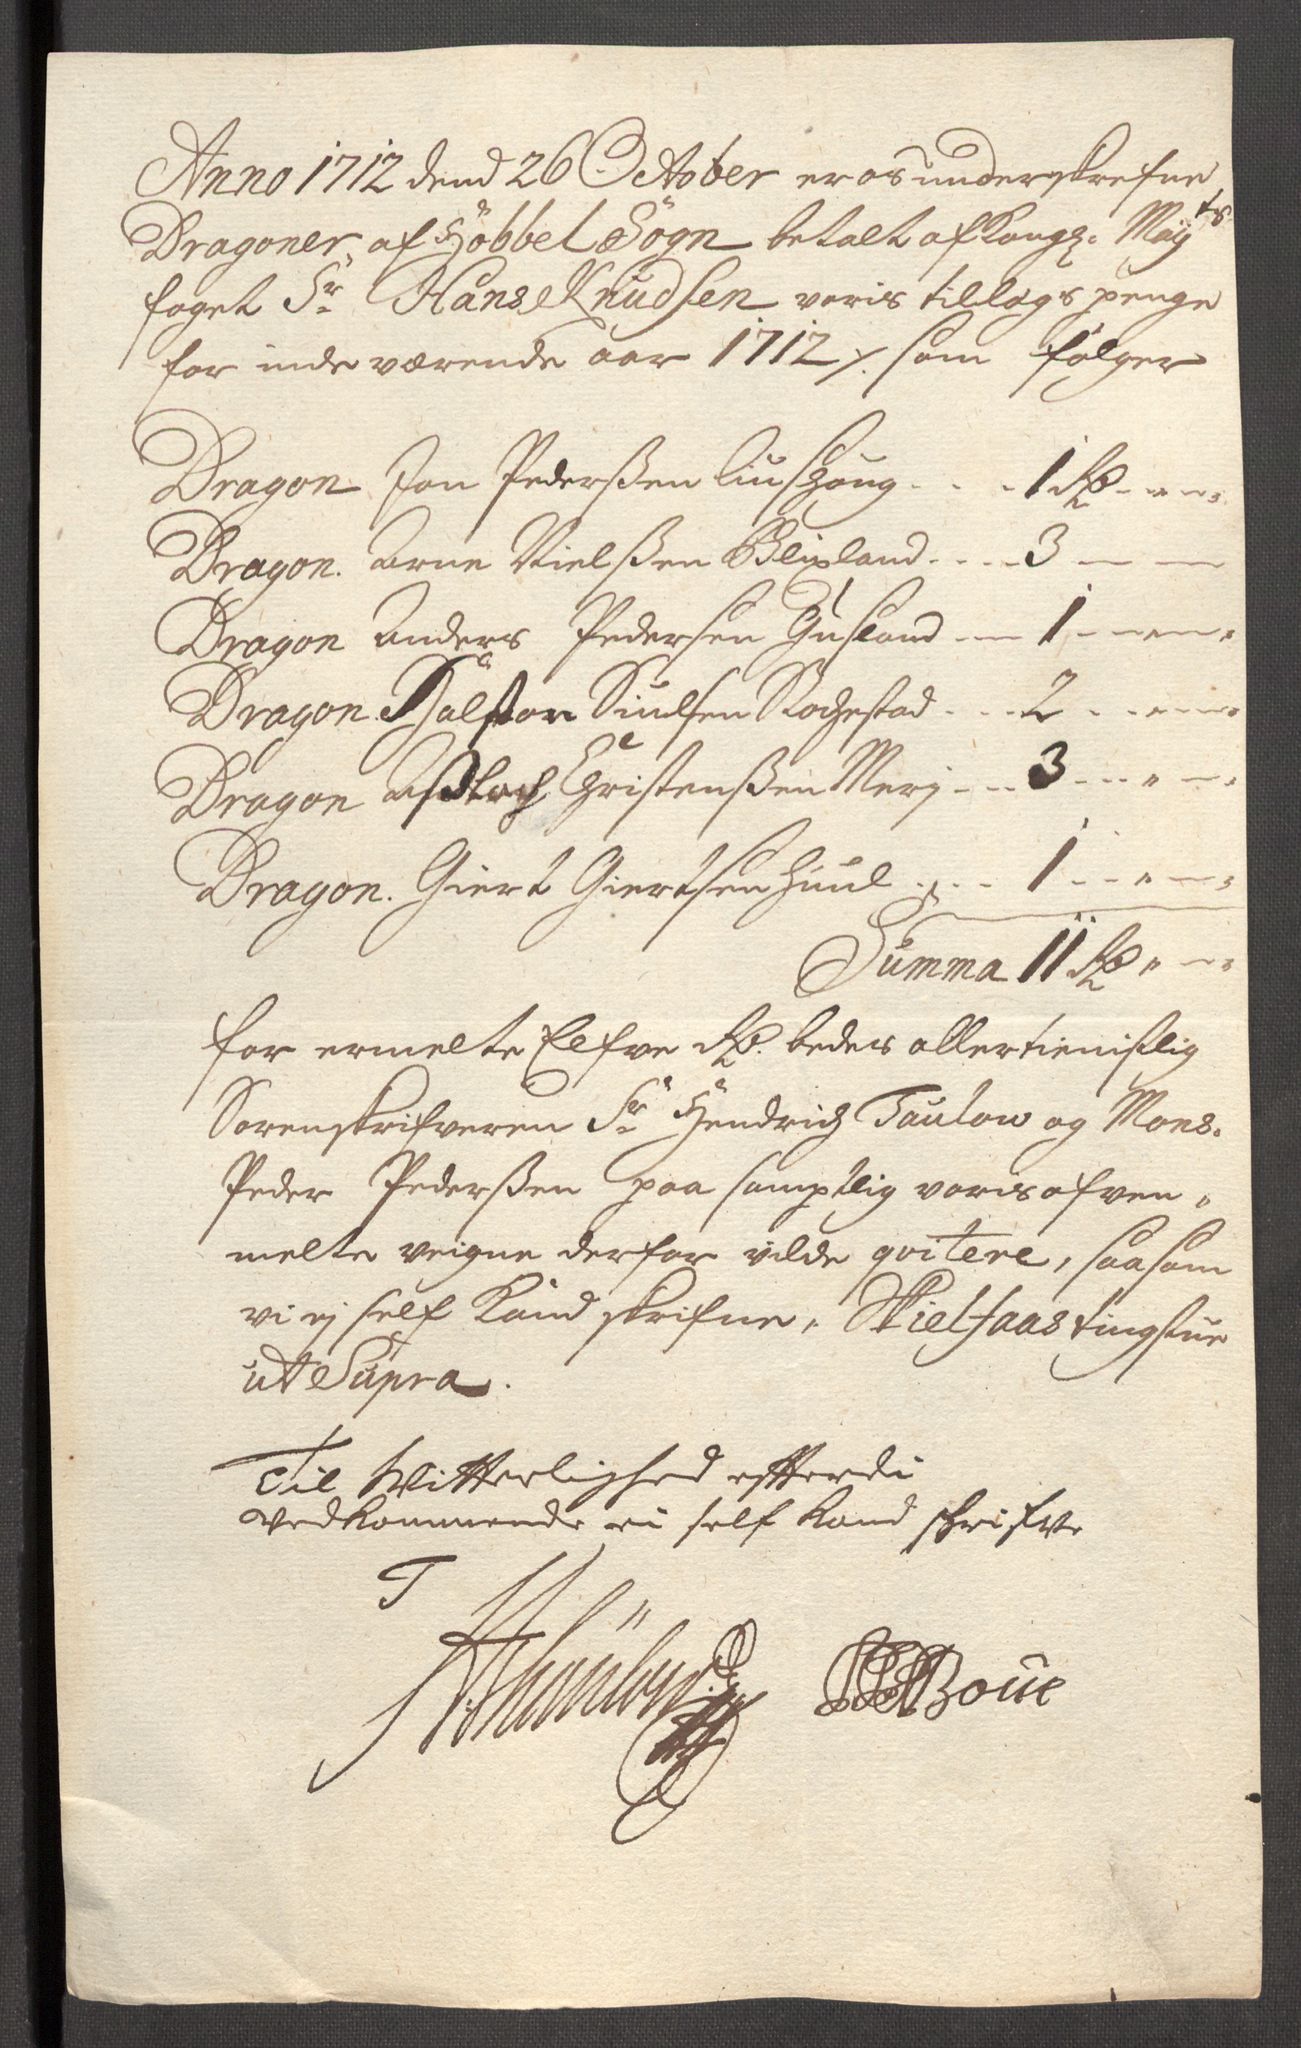 Anno 1712 dend 26 October er os underskrefne
Dragoner af Høbbel Sogn betalt af Kongl: Mayts
foget Sr Hans Knudsen voris tillags penge
for inde værende aar 1712 /. som følger
Dragon Jon Pederßen - - - 1 Rd - " - "
Dragon. Arne Nielßen Blixland - - - - 3 - - -
Dragon Anders Pedersen Gusland - - 1 - - " - "
Dragon Halvor Siulsen Rochestad - - - 2 - - " - "
Dragon Aslach Christenßen Merj - - - 3 - - " - "
Dragon. Giert Giertsen Huul - - - 1 - - " - "
Summa 11 Rd " - "
for ermelte Elfve Rd. bedes allertienistlig
Sorenskrifveren Sr Hendrich Taulow og Mons.
Peder Pederßen paa samptlig voris ofven-
melte veigne derfor vilde qvitere, saasom
vi ej self Kand skrifve, Tingstue
ut Supra.
Til Witterlighed effterdi
vedkommende ei self kand schrifve
T
Boüe